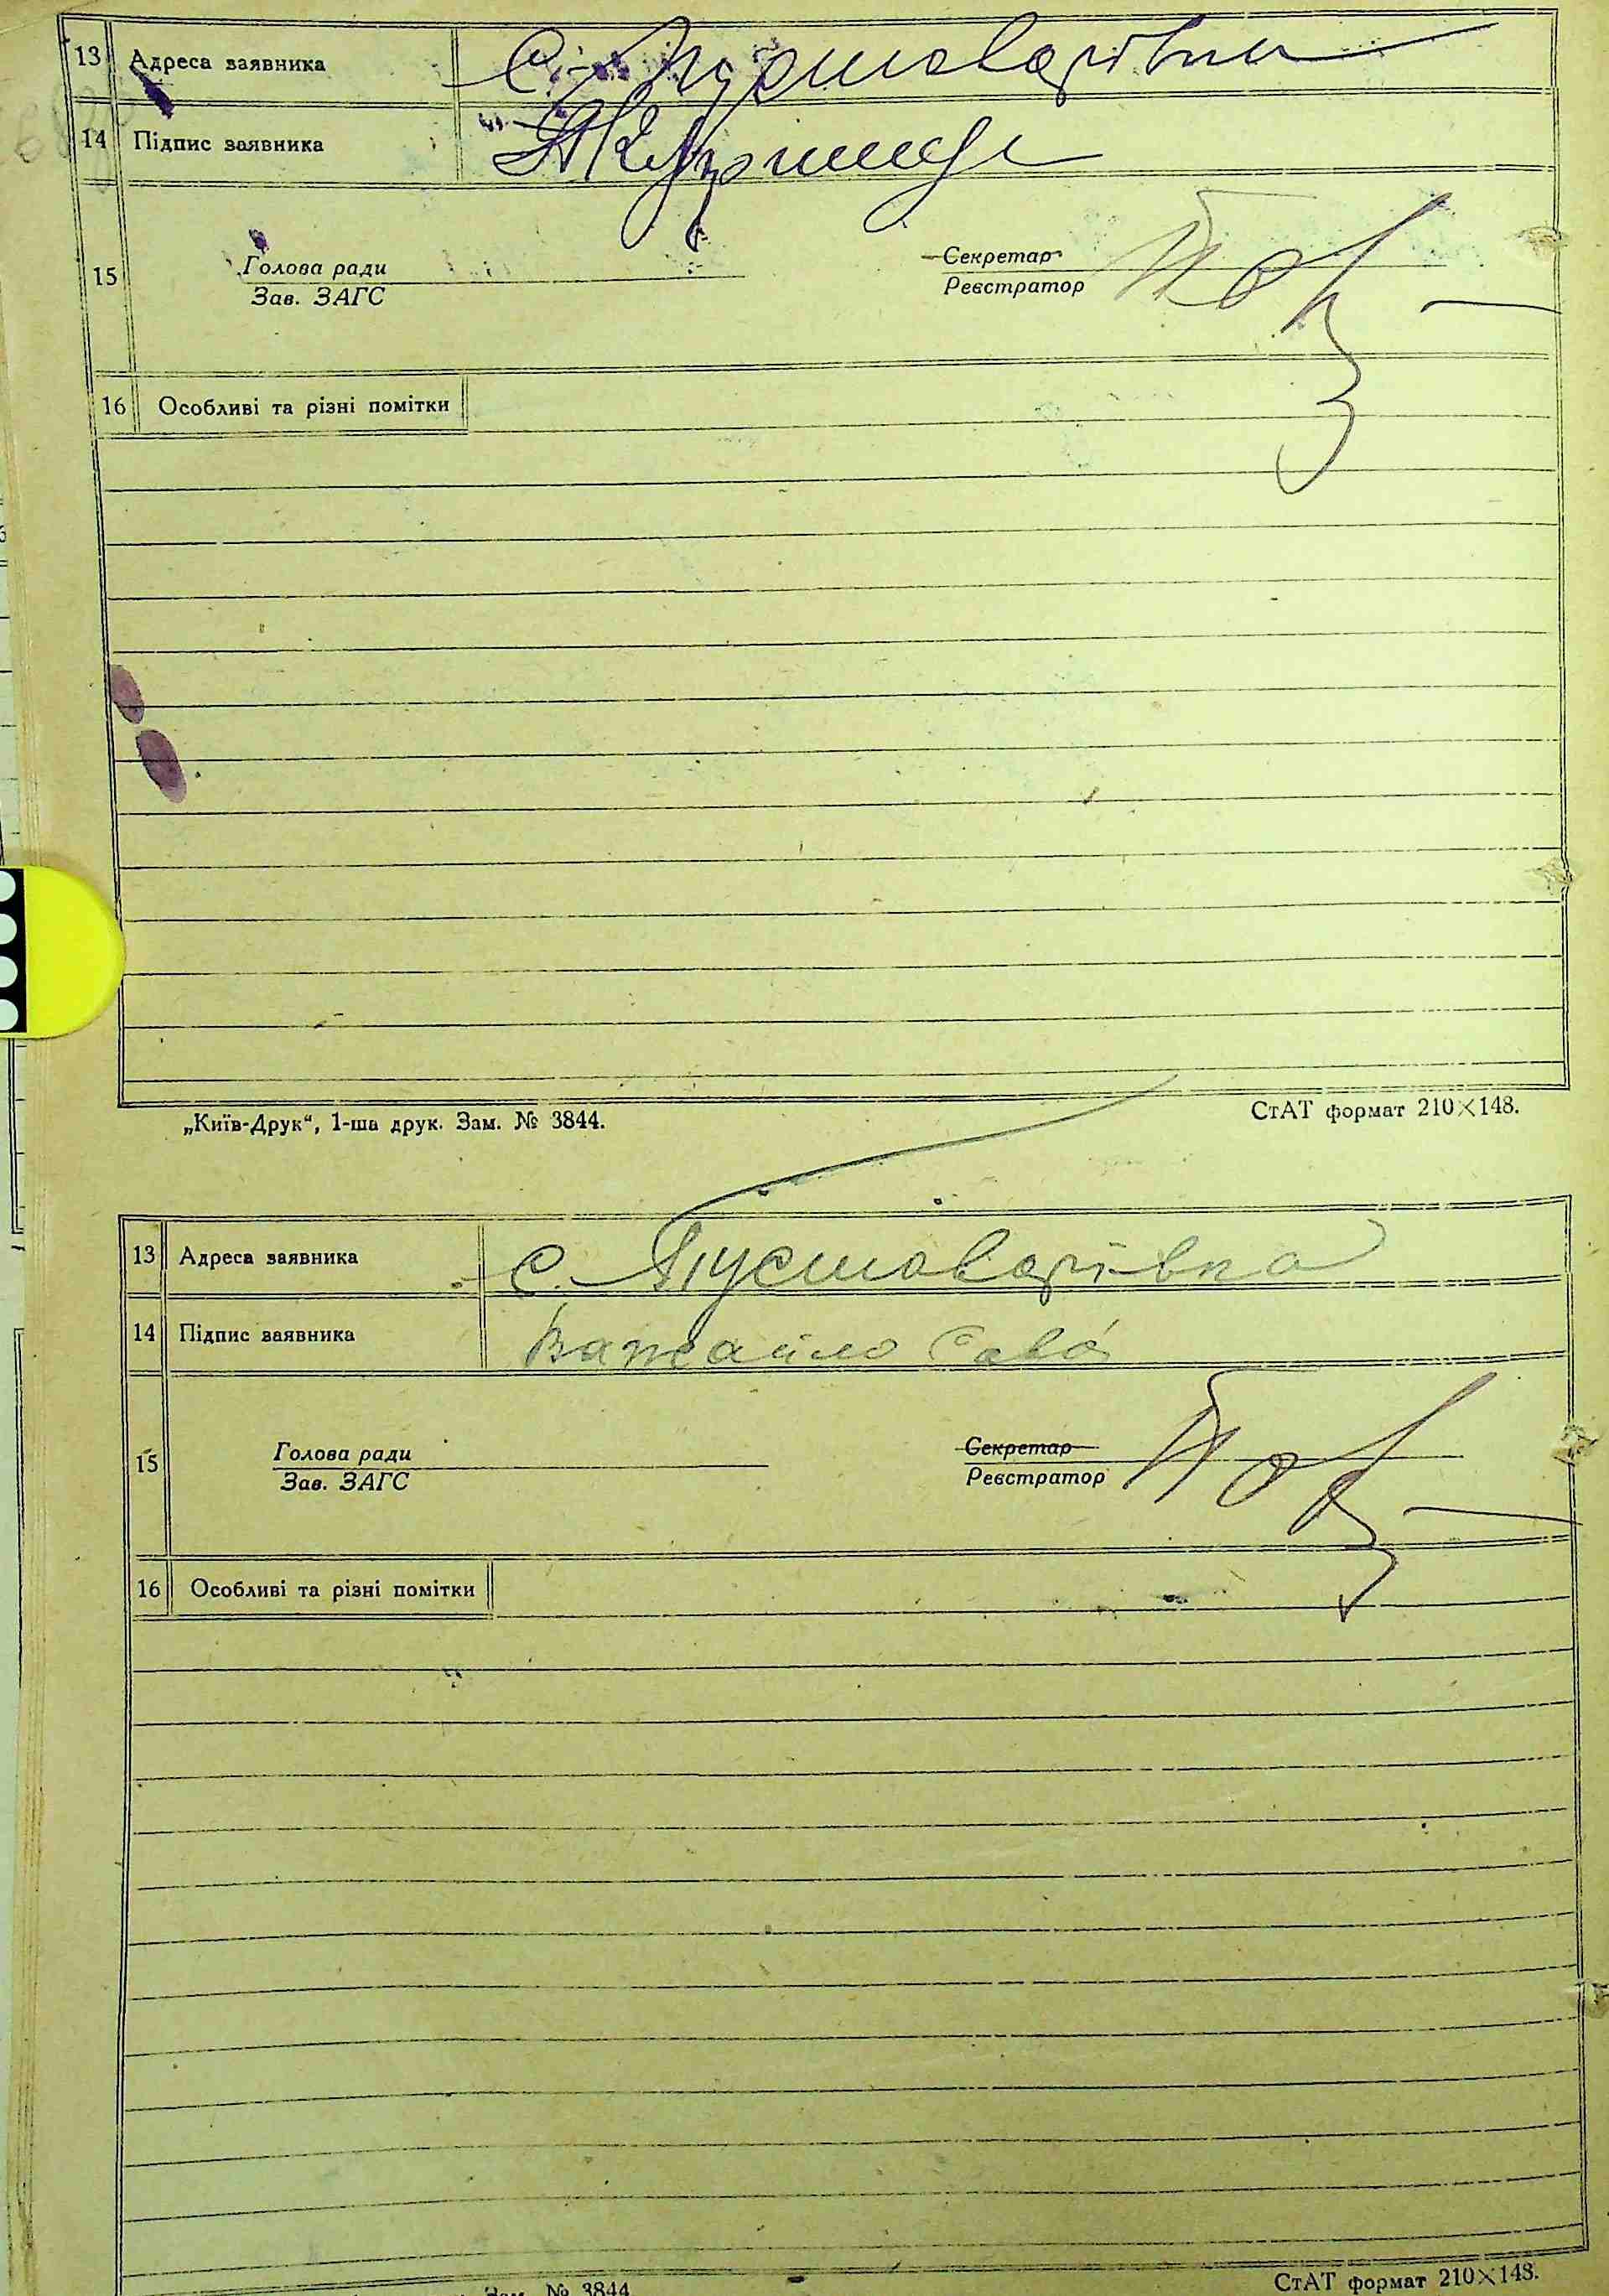 13 Адреса заявника С. Пустоварівка
14 Підпис заявника
15 Голова ради Секретар
Зав. ЗАГС Реєстратор
16 Особливі та різні помітки
„Київ-Друк“, 1-ша друк. Зам. № 3844. СтАТ формат 210×148.
13 Адреса заявника С. Пустоварівка
14 Підпис заявника Важайло Сава
15 Голова ради Секретар
Зав. ЗАГС Реєстратор
16 Особливі та різні помітки
Зам. № 3844 СтАТ формат 210×148.